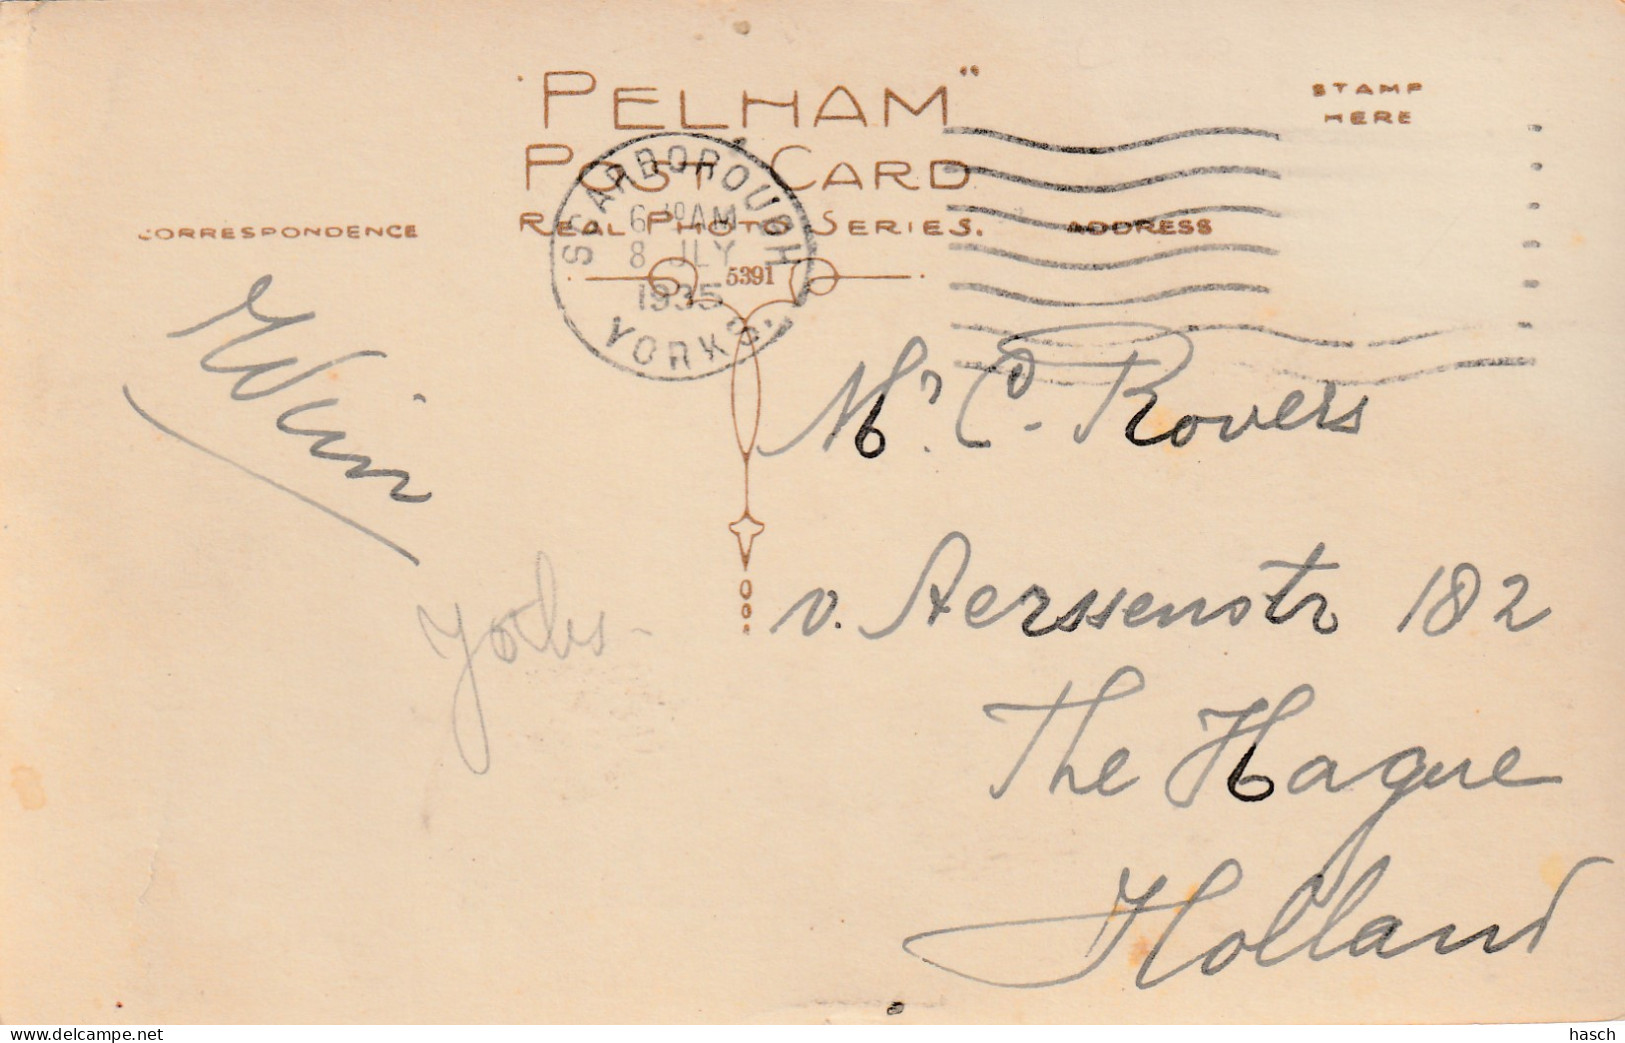 "PELHAM"
POST CARD
REAL PHOTO SERIES.
STAMP
HERE
CORRESPONDENCE
ADDRESS
5391
SCARBOROUGH
6 10 AM
8 JLY
1935
YORKS.
Wim
Mr. C. Rovers
v. Aerssenstr 182
The Hague
Holland
hasch
www.delcampe.net